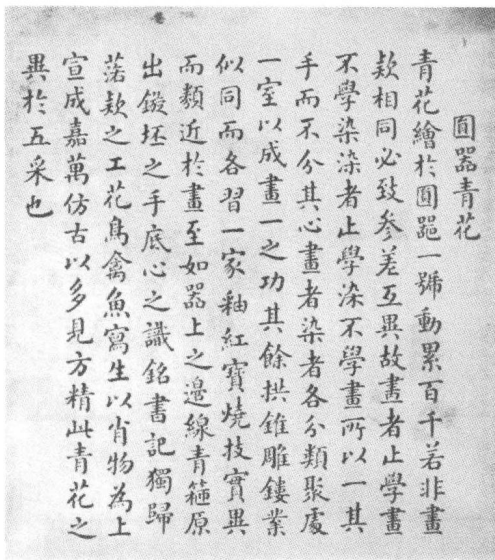 圓器青花
青花繪於圓器一號動累百千若非畫
欵相同必致參差互異故畫者止學畫
不學染染者止學染不學畫所以一其
手而不分其心畫者染者各分類聚處
一室以成畫一之功其餘拱錐雕鏤業
似同而各習一家釉紅寶燒技實異
而類近於畫至如器上之邊線青箍原
出鏇坯之手底心之識銘書記獨歸
落欵之工花鳥禽魚寫生以肖物為上
宣成嘉萬仿古以多見方精此青花之
異於五采也